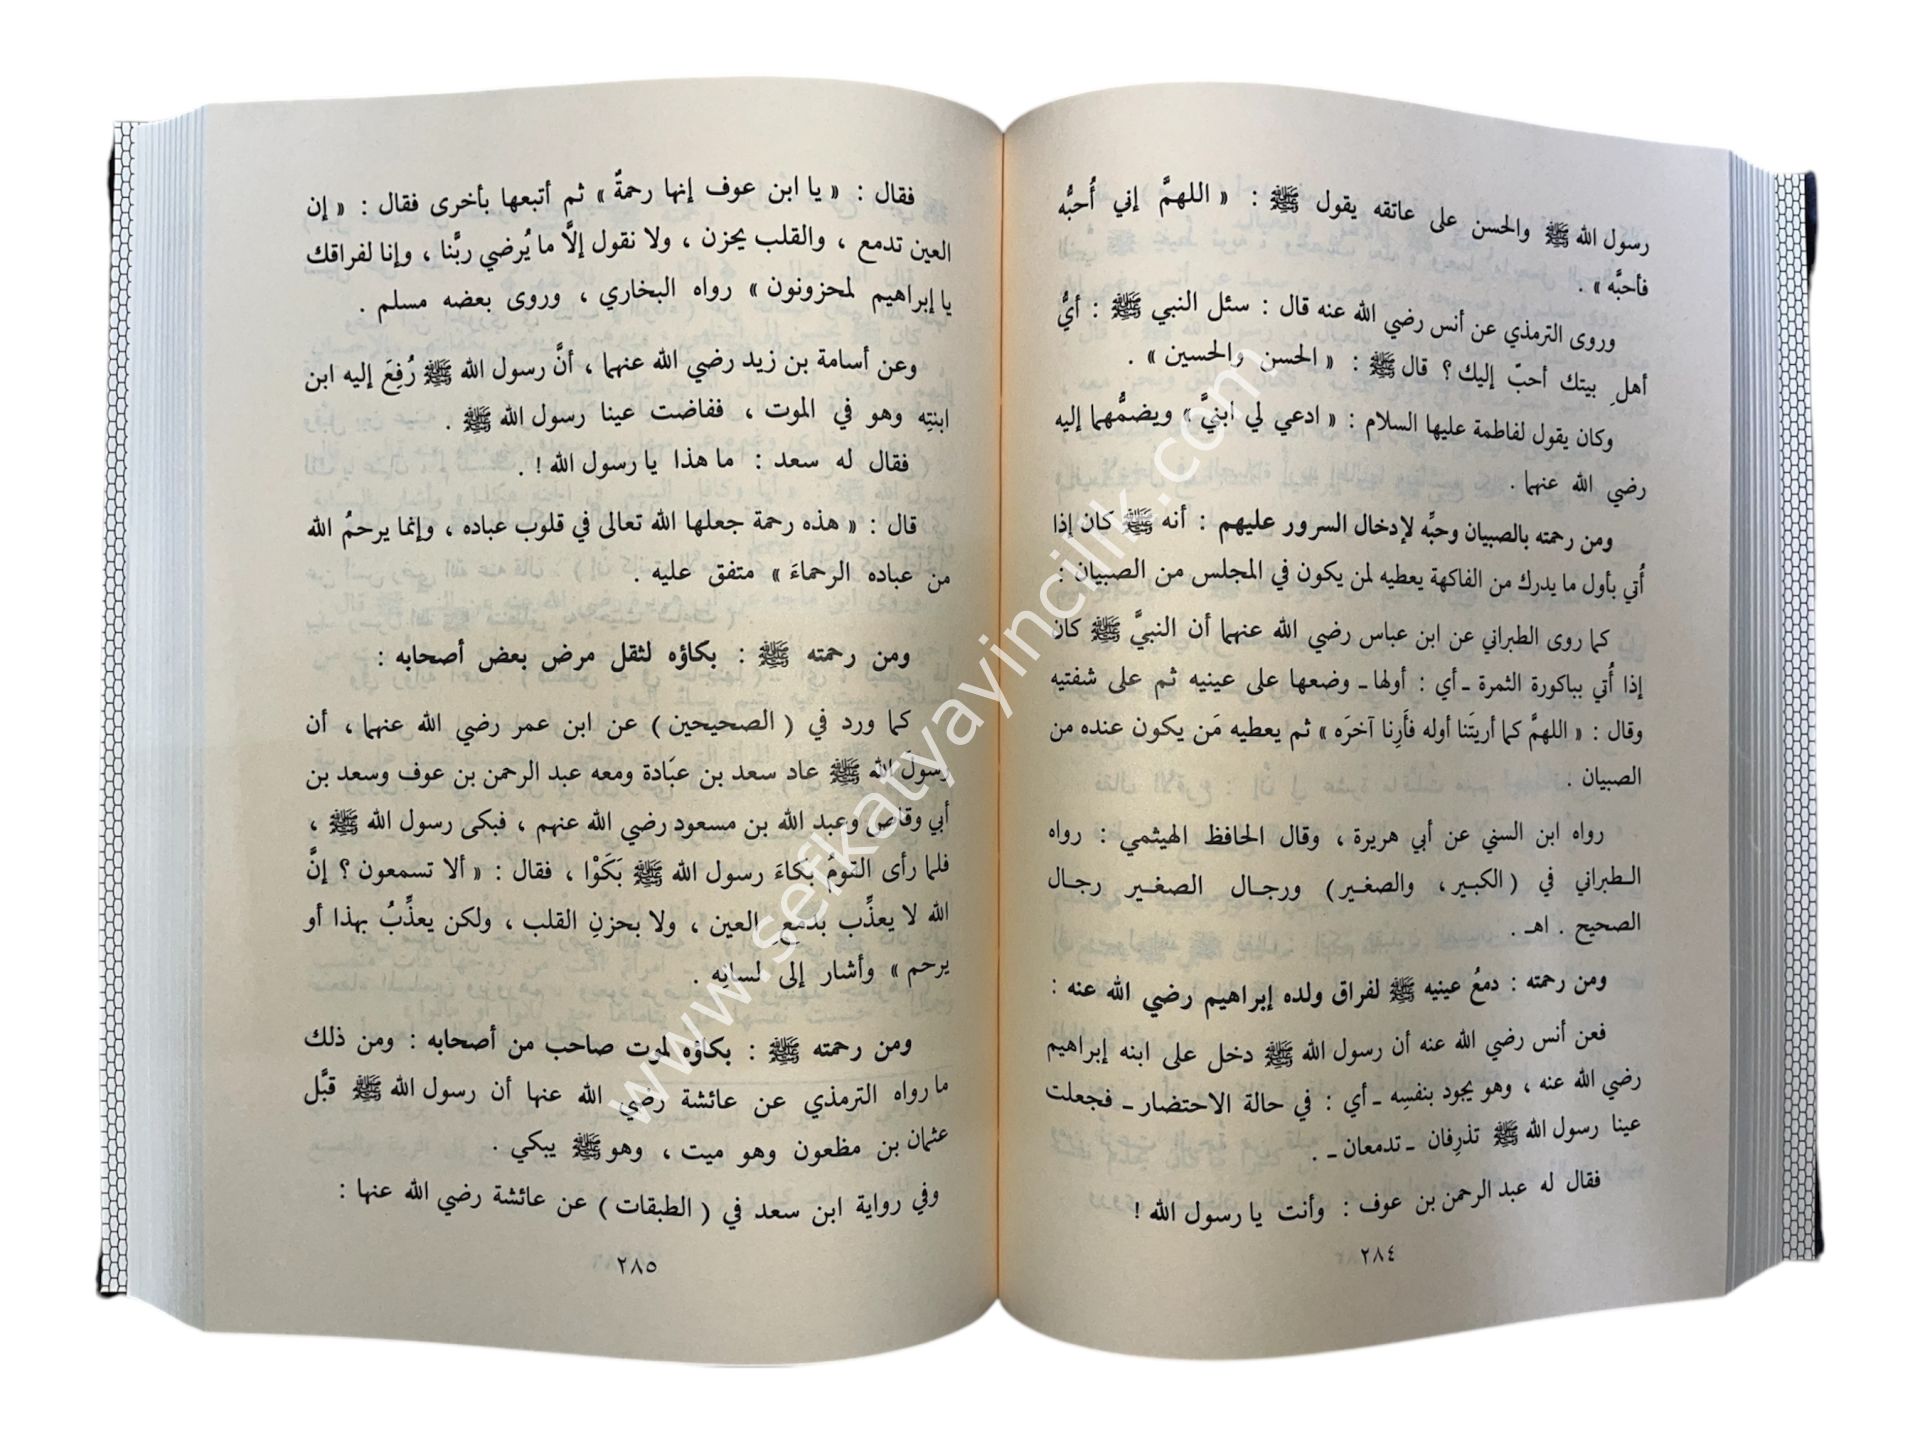 رسول الله ﷺ والحسن على عاتقه يقول ﷺ : « اللهمَّ إني أُحبُّه
فأحبَّه » .
وروى الترمذي عن أنس رضي الله عنه قال : سئل النبي ﷺ : أيُّ
أهلِ بيتك أحبّ إليك؟ قال ﷺ : « الحسن والحسين » .
وكان يقول لفاطمة عليها السلام : « ادعي لي ابنيَّ » ويضمُّهما إليه
رضي الله عنهما .
ومن رحمته بالصبيان وحبِّه لإدخال السرور عليهم : أنه ﷺ كان إذا
أُتي بأول ما يدرك من الفاكهة يعطيه لمن يكون في المجلس من الصبيان :
كما روى الطبراني عن ابن عباس رضي الله عنهما أن النبيَّ ﷺ كان
إذا أُتي بباكورة الثمرة ـ أي : أولها ـ وضعها على عينيه ثم على شفتيه
وقال : « اللهمَّ كما أريتَنا أوله فأَرِنا آخرَه » ثم يعطيه مَن يكون عنده من
الصبيان .
رواه ابن السني عن أبي هريرة ، وقال الحافظ الهيثمي : رواه
الطبراني في (الكبير، والصغير) ورجال الصغير رجال
الصحيح . اهـ .
ومن رحمته : دمعُ عينيه ﷺ لفراق ولده إبراهيم رضي الله عنه :
فعن أنس رضي الله عنه أن رسول الله ﷺ دخل على ابنه إبراهيم
رضي الله عنه ، وهو يجود بنفسِه ـ أي : في حالة الاحتضار ـ فجعلت
عينا رسول الله ﷺ تذرِفان ـ تدمعان ـ .
فقال له عبد الرحمن بن عوف : وأنت يا رسول الله !
٢٨٤
فقال : « يا ابن عوف إنها رحمةٌ » ثم أتبعها بأخرى فقال : « إن
العين تدمع ، والقلب يحزن ، ولا نقول إلَّا ما يُرضي ربَّنا ، وإنا لفراقك
يا إبراهيم لمحزونون » رواه البخاري ، وروى بعضه مسلم .
وعن أسامة بن زيد رضي الله عنهما ، أنَّ رسول الله ﷺ رُفِعَ إليه ابن
ابنتِه وهو في الموت ، ففاضت عينا رسول الله ﷺ .
فقال له سعد : ما هذا يا رسول الله ! .
قال : « هذه رحمة جعلها الله تعالى في قلوب عباده ، وإنما يرحمُ الله
من عباده الرحماءَ » متفق عليه .
ومن رحمته ﷺ : بكاؤه لثقل مرض بعض أصحابه :
كما ورد في ( الصحيحين ) عن ابن عمر رضي الله عنهما ، أن
رسول الله ﷺ عاد سعد بن عبَادة ومعه عبد الرحمن بن عوف وسعد بن
أبي وقاص وعبد الله بن مسعود رضي الله عنهم ، فبكى رسول الله ﷺ ،
فلما رأى القومُ بكاءَ رسول الله ﷺ بَكَوْا ، فقال : « ألا تسمعون ؟ إنَّ
الله لا يعذِّب بدمع العين ، ولا بحزنِ القلب ، ولكن يعذِّبُ بهذا أو
يرحم » وأشار إلى لسانِه .
ومن رحمته ﷺ : بكاؤه لموت صاحب من أصحابه : ومن ذلك
ما رواه الترمذي عن عائشة رضي الله عنها أن رسول الله ﷺ قبَّل
عثمان بن مظعون وهو ميت ، وهو ﷺ يبكي .
وفي رواية ابن سعد في ( الطبقات ) عن عائشة رضي الله عنها :
٢٨٥
www.sefkatyayincilik.com